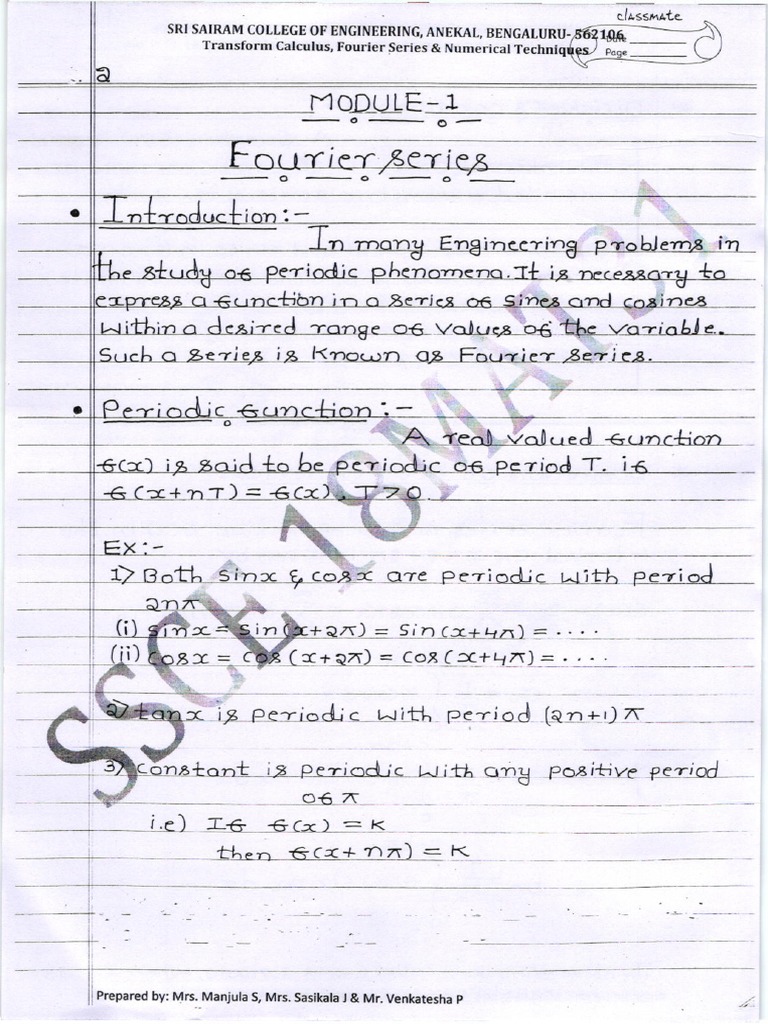 classmate
SRI SAIRAM COLLEGE OF ENGINEERING, ANEKAL, BENGALURU- 562106
Date
Transform Calculus, Fourier Series & Numerical Techniques
Page
2
MODULE-1
Fourier series
• Introduction:-
In many Engineering problems in
the study of periodic phenomena. It is necessary to
express a function in a series of sines and cosines
within a desired range of values of the variable.
Such a series is known as Fourier series.
• Periodic function:-
A real valued function
f(x) is said to be periodic of period T. if
f(x+nT) = f(x), T>0.
Ex:-
1) Both sinx & cosx are periodic with period
2nπ
(i) sinx = sin(x+2π) = sin(x+4π) = ....
(ii) cosx = cos(x+2π) = cos(x+4π) = ....
2) tanx is periodic with period (2n+1)π
3) constant is periodic with any positive period
of π
i.e) If f(x) = K
then f(x+nπ) = K
SSCE 18MAT31
Prepared by: Mrs. Manjula S, Mrs. Sasikala J & Mr. Venkatesha P